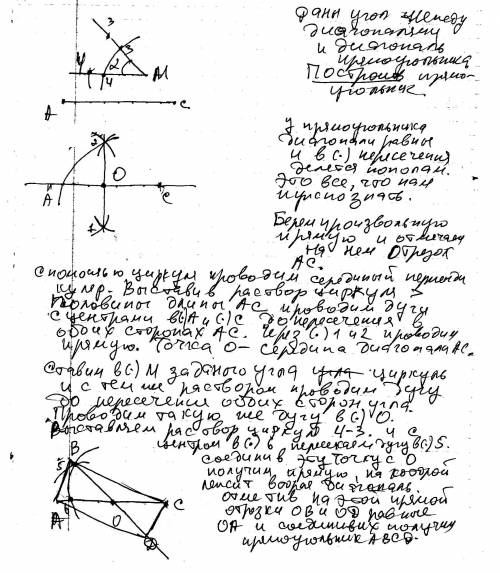 Дани угол между
диагоналями
и диагональ
прямоугольника
Построит прямо-
угольник
3
3
2
1
4
М
А
С
У прямоугольника
диагонали равны
и в (·) пересечения
делятся пополам.
Это все, что нам
нужно знать.
2
А
О
С
1
Берем произвольную
прямую и отмечаем
на нем Отрезок
АС.
С помощью циркуля проводим серединый перпенди
куляр. Выставив раствор циркуля >
половины длины АС проводим дугу
с центрами в (·) А и (·) С до пересечения в
обоих сторонах АС. Через (·) 1 и 2 проводим
прямую. Точка О - середина диагонали АС.
Ставим в (·) М заданого угла циркуль
и с тем же раствором проводим дугу
до пересечения обоих сторон угла.
Проводим такую же дугу в (·) О.
Выставляем раствор циркуля 4-3. и с
центром в (·) 6 пересекаем дугу в (·) 5.
соединив эту точку с О
получим прямую, на которой
лежит вторая диагональ.
отметив на этой прямой
отрезки ОВ и OD равные
ОА и соединивих получим
прямоугольник ABCD.
В
5
А
6
О
С
D